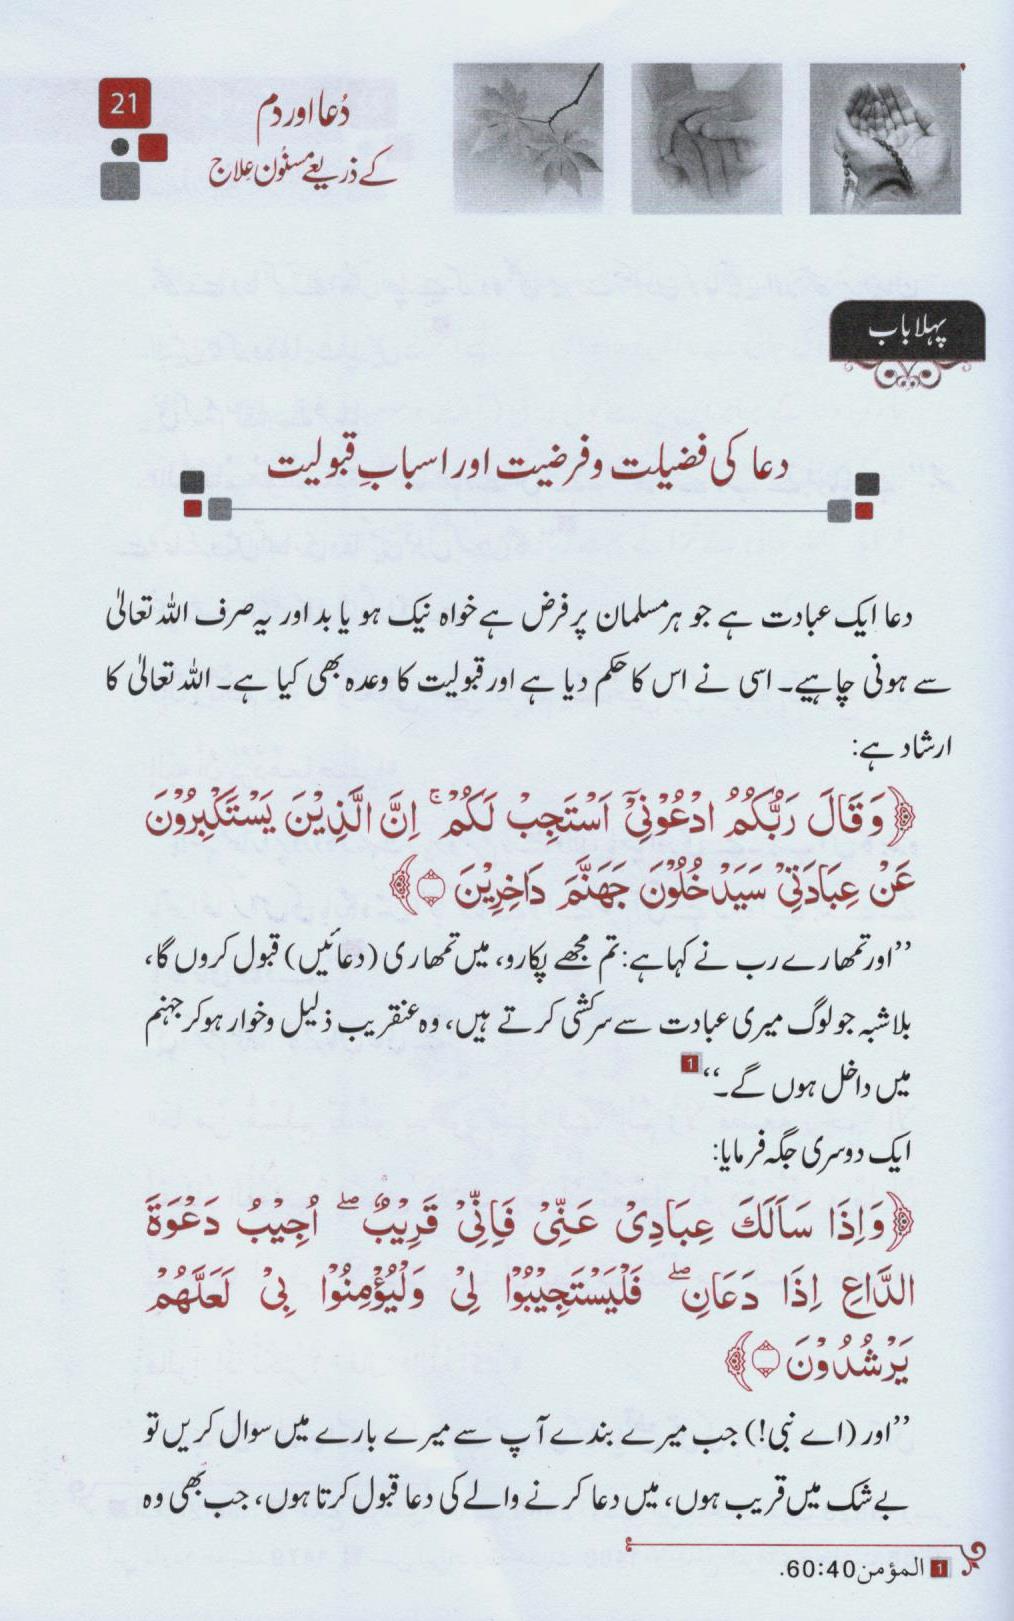 21
دُعا اور دم
کے ذریعے مسنُون عِلاج
پہلا باب
دعا کی فضیلت و فرضیت اور اسبابِ قبولیت
دعا ایک عبادت ہے جو ہر مسلمان پر فرض ہے خواہ نیک ہو یا بد اور یہ صرف اللہ تعالیٰ
سے ہونی چاہیے۔ اسی نے اس کا حکم دیا ہے اور قبولیت کا وعدہ بھی کیا ہے۔ اللہ تعالیٰ کا
ارشاد ہے:
﴿وَقَالَ رَبُّكُمُ ادْعُوْنِیْۤ اَسْتَجِبْ لَكُمْ ۚ اِنَّ الَّذِیْنَ یَسْتَكْبِرُوْنَ
عَنْ عِبَادَتِیْ سَیَدْخُلُوْنَ جَهَنَّمَ دَاخِرِیْنَ ۝﴾
’’اور تمھارے رب نے کہا ہے: تم مجھے پکارو، میں تمھاری (دعائیں) قبول کروں گا،
بلاشبہ جو لوگ میری عبادت سے سرکشی کرتے ہیں، وہ عنقریب ذلیل وخوار ہو کر جہنم
میں داخل ہوں گے۔‘‘ 1
ایک دوسری جگہ فرمایا:
﴿وَاِذَا سَاَلَكَ عِبَادِیْ عَنِّیْ فَاِنِّیْ قَرِیْبٌ ؕ اُجِیْبُ دَعْوَةَ
الدَّاعِ اِذَا دَعَانِ ۖ فَلْیَسْتَجِیْبُوْا لِیْ وَلْیُؤْمِنُوْا بِیْ لَعَلَّهُمْ
یَرْشُدُوْنَ ۝﴾
’’اور (اے نبی!) جب میرے بندے آپ سے میرے بارے میں سوال کریں تو
بے شک میں قریب ہوں، میں دعا کرنے والے کی دعا قبول کرتا ہوں، جب بھی وہ
1 المؤمن 60:40.